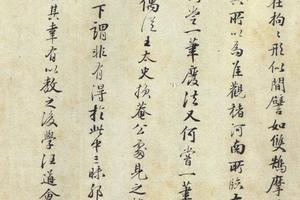 在拘拘形似間譬如雙鵠摩
其所以為准觀褚河南所臨
嘗一筆廢法又何嘗一筆
偶從王太史損菴公處見之
下謂非有得於此中三昧耶
其幸有以教之後學汪道會